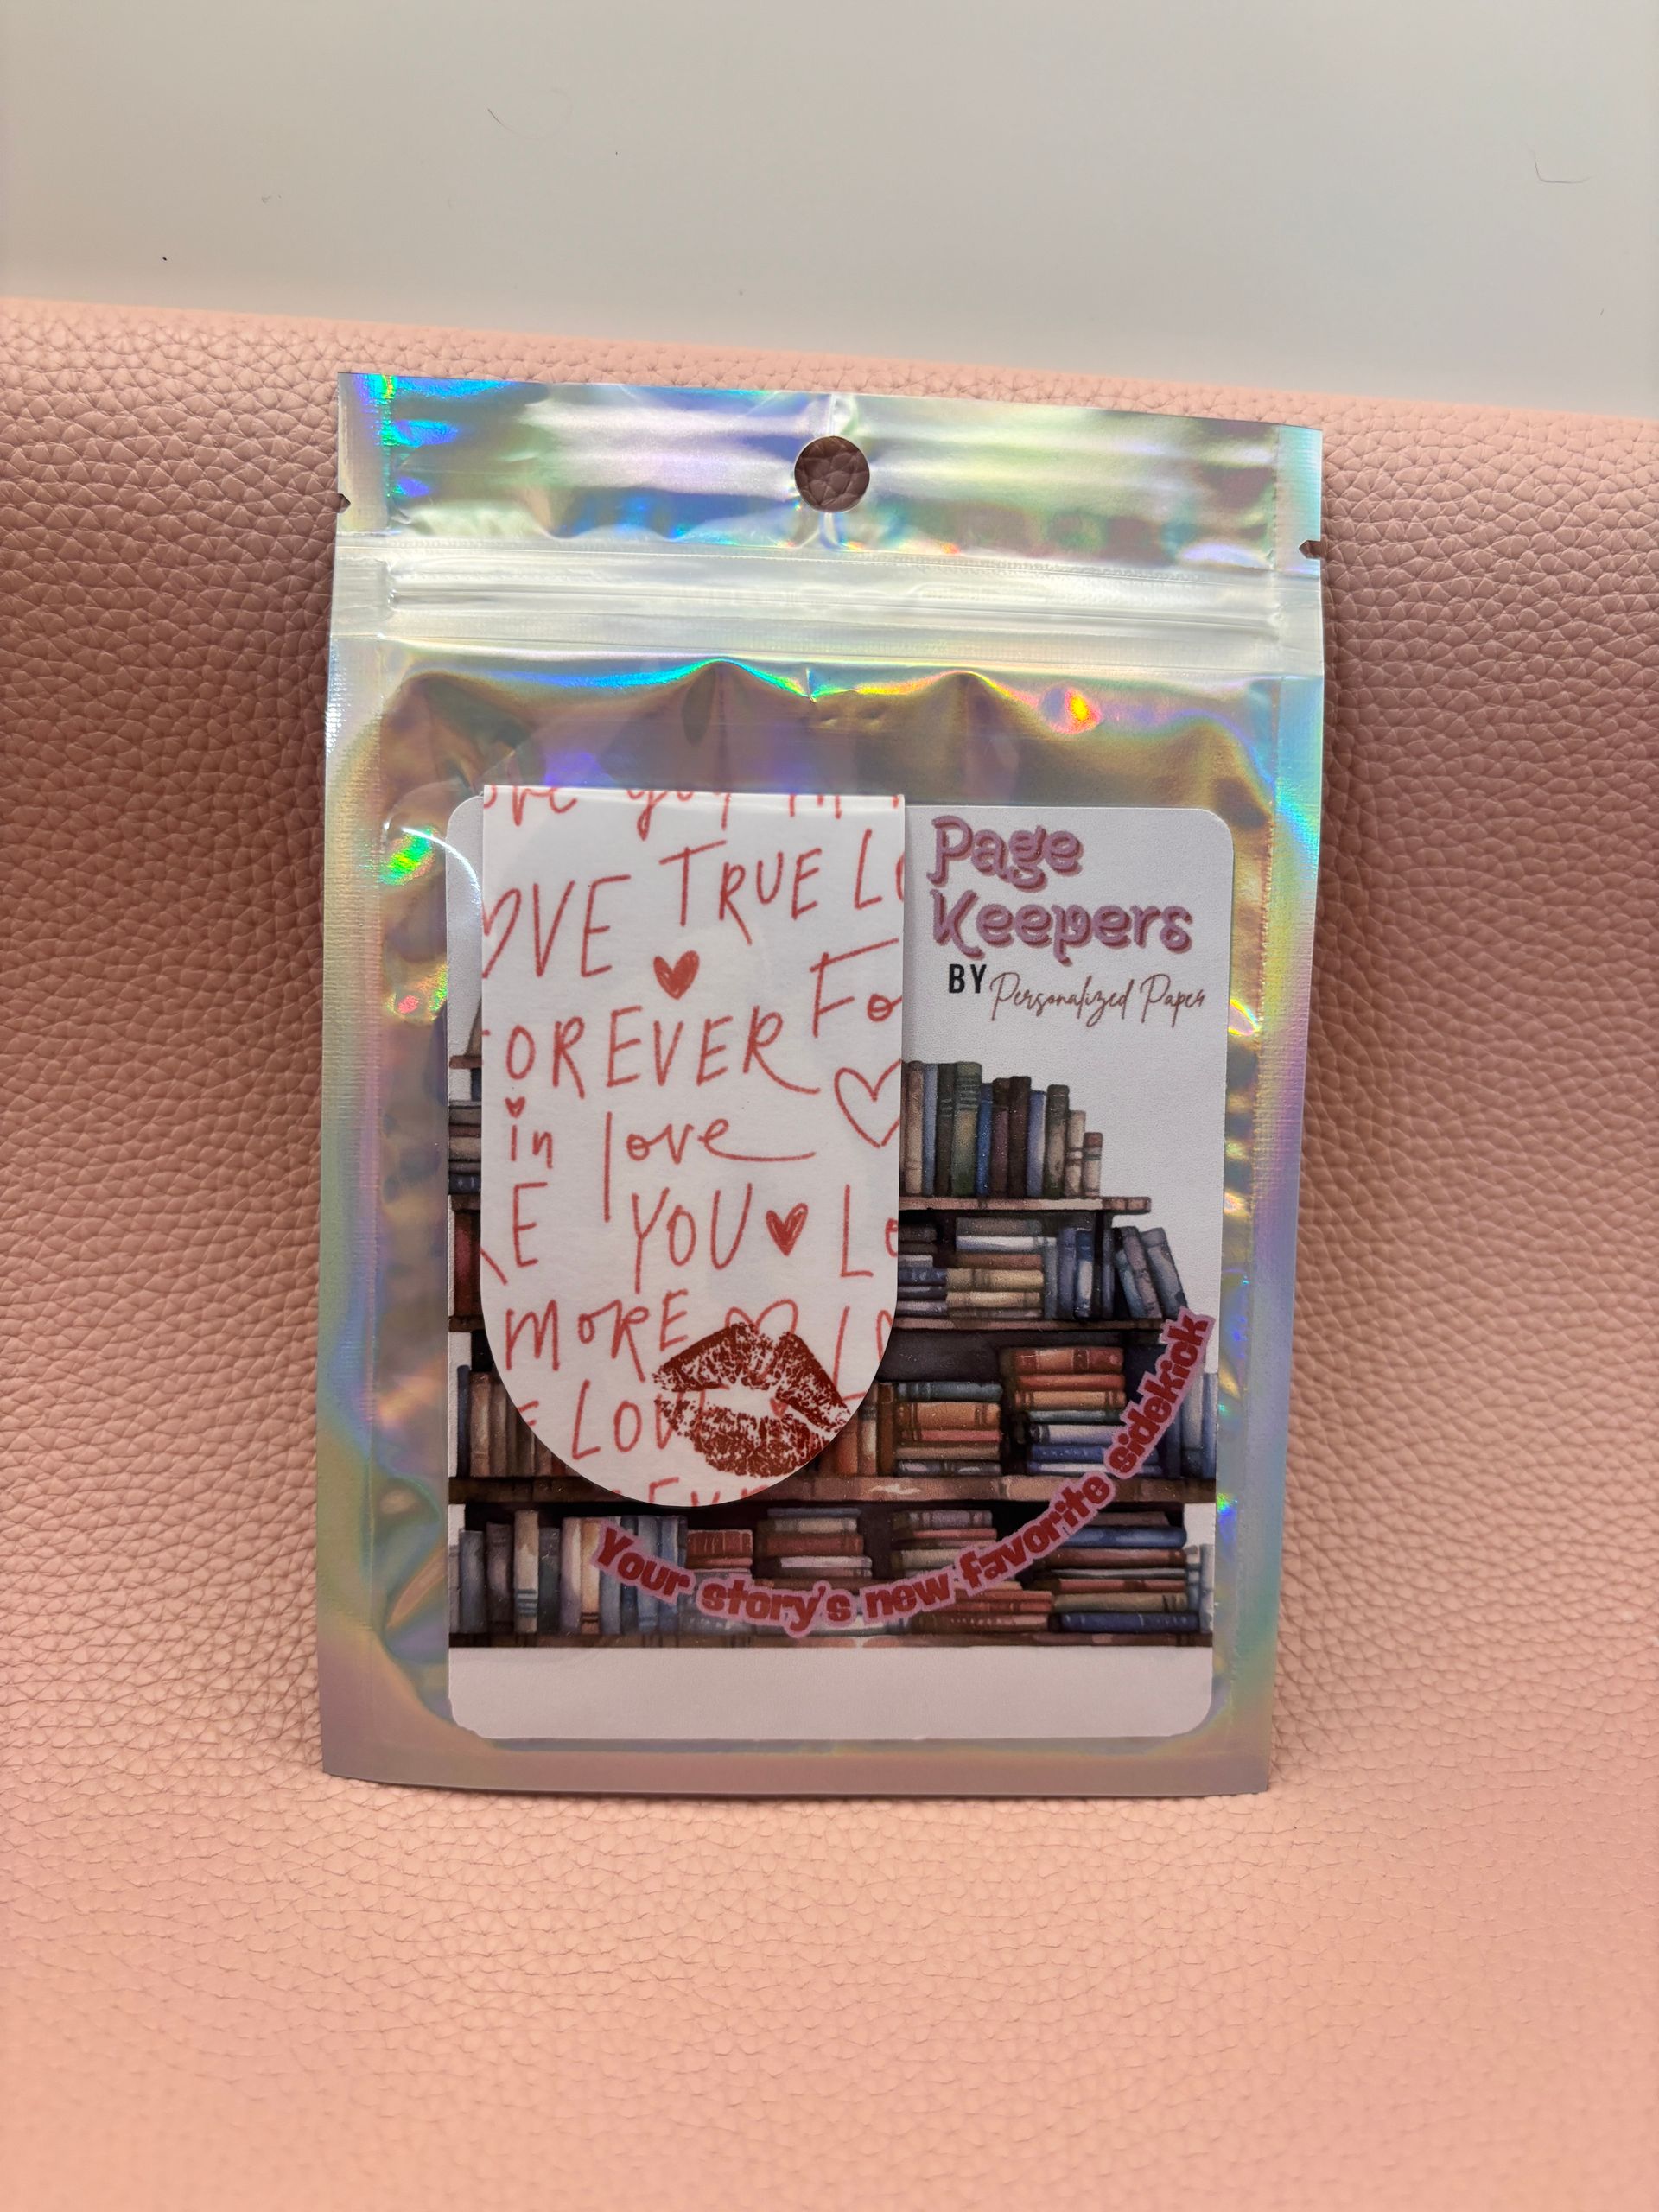 TRUE
OVE
FOREVER
in love
YOU
MORE
LOVE
Page
Keepers
BY Personalized Paper
Your story's new favorite sidekick